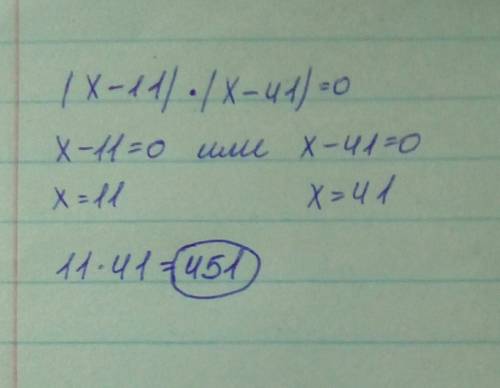 (x-11)·(x-41)=0
x-11=0 или x-41=0
x=11 x=41
11·41=451